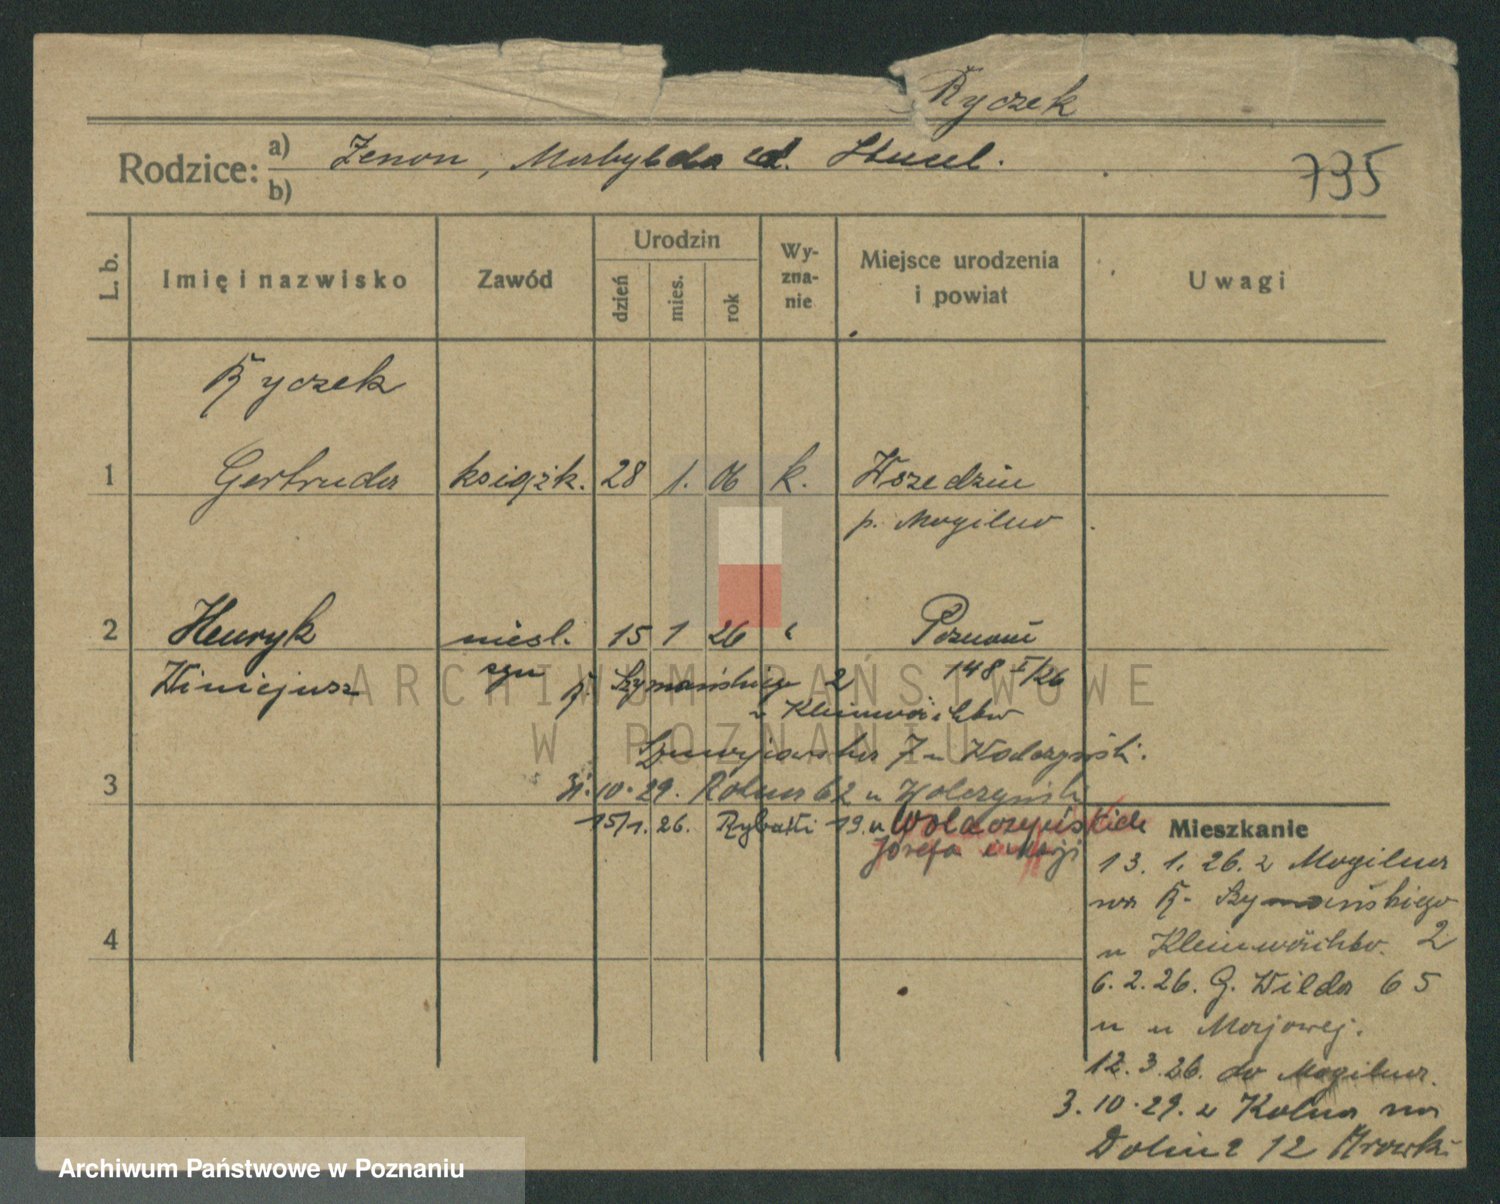 Ryczek
Rodzice: a) Zenon, Matylda cd. Stucel.
b)
735
L. b.
Imię i nazwisko
Zawód
Urodzin
dzień
mies.
rok
Wy-
zna-
nie
Miejsce urodzenia
i powiat
Uwagi
Ryczek
1 Gertruda książk. 28 1. 06 k. Wszedziń
p. Mogilno
2 Henryk niesl. 15 1 26 Poznań
Winicjusz syn 148 I/26
R. Szymańskiego 2
u Kleinwächter
7 u Wolczyński.
3 31.10.29. Rolna 62 u Wolczyński
15/1.26. Rybaki 19. u Wolaczyńskich
Józefa i Maji
4
Mieszkanie
13. 1. 26. z Mogilna
na R. Szymańskiego
u Kleinwächter. 2
6. 2. 26. G. Wilda 65
u u Majowej.
12. 3. 26. do Mogilna.
3. 10. 29. z Kolna na
Dolina 12 Mrowki
ARCHIWUM PAŃSTWOWE
W POZNANIU
Archiwum Państwowe w Poznaniu